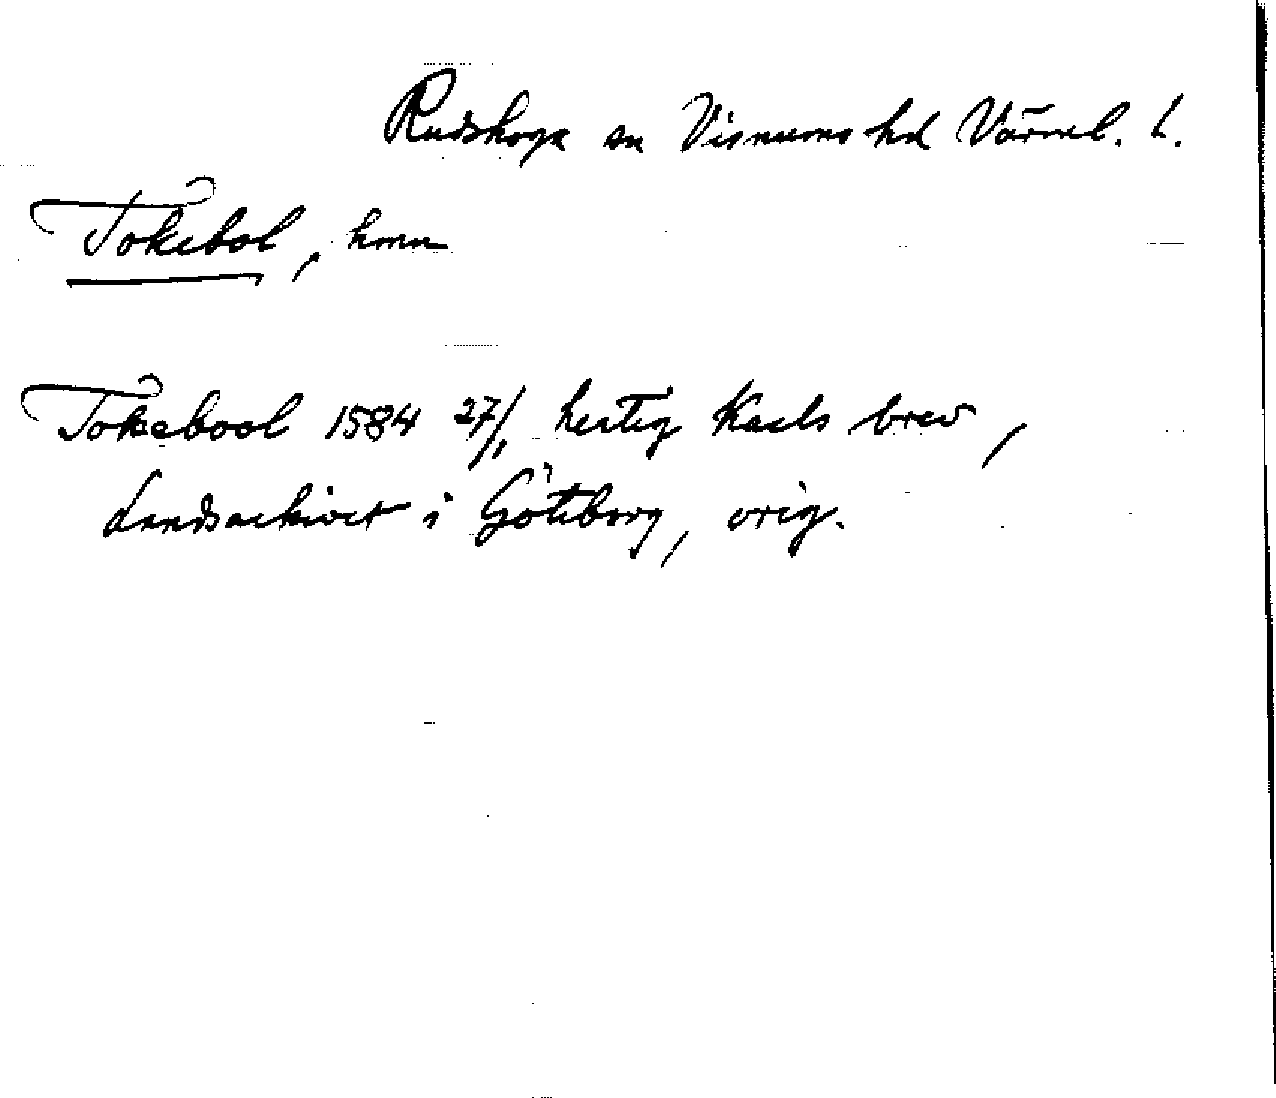 Rudskoga sn Visnums hd Värml. l.
Tokebol, hmn
Tokebool 1584 27/1, hertig Karls brev,
Landsarkivet i Göteborg, orig.